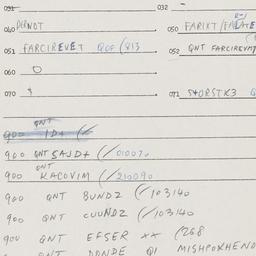 031 032
040 DERNOT 050 FARIXT /
051 FARCIREVET QOF (813 052 QNT FARCIREVMT
060 O
070 071 STORSTK3 Q
QNT
900 ID+ (
900 QNT SAJD+ (/ 010070
QNT
900 KACOVIM (/210090
900 QNT BUND2 (/103140
900 QNT CUUND2 (/103140
900 QNT EFSER ** (268
QNT DONDE Q1 MISHPOKHENO